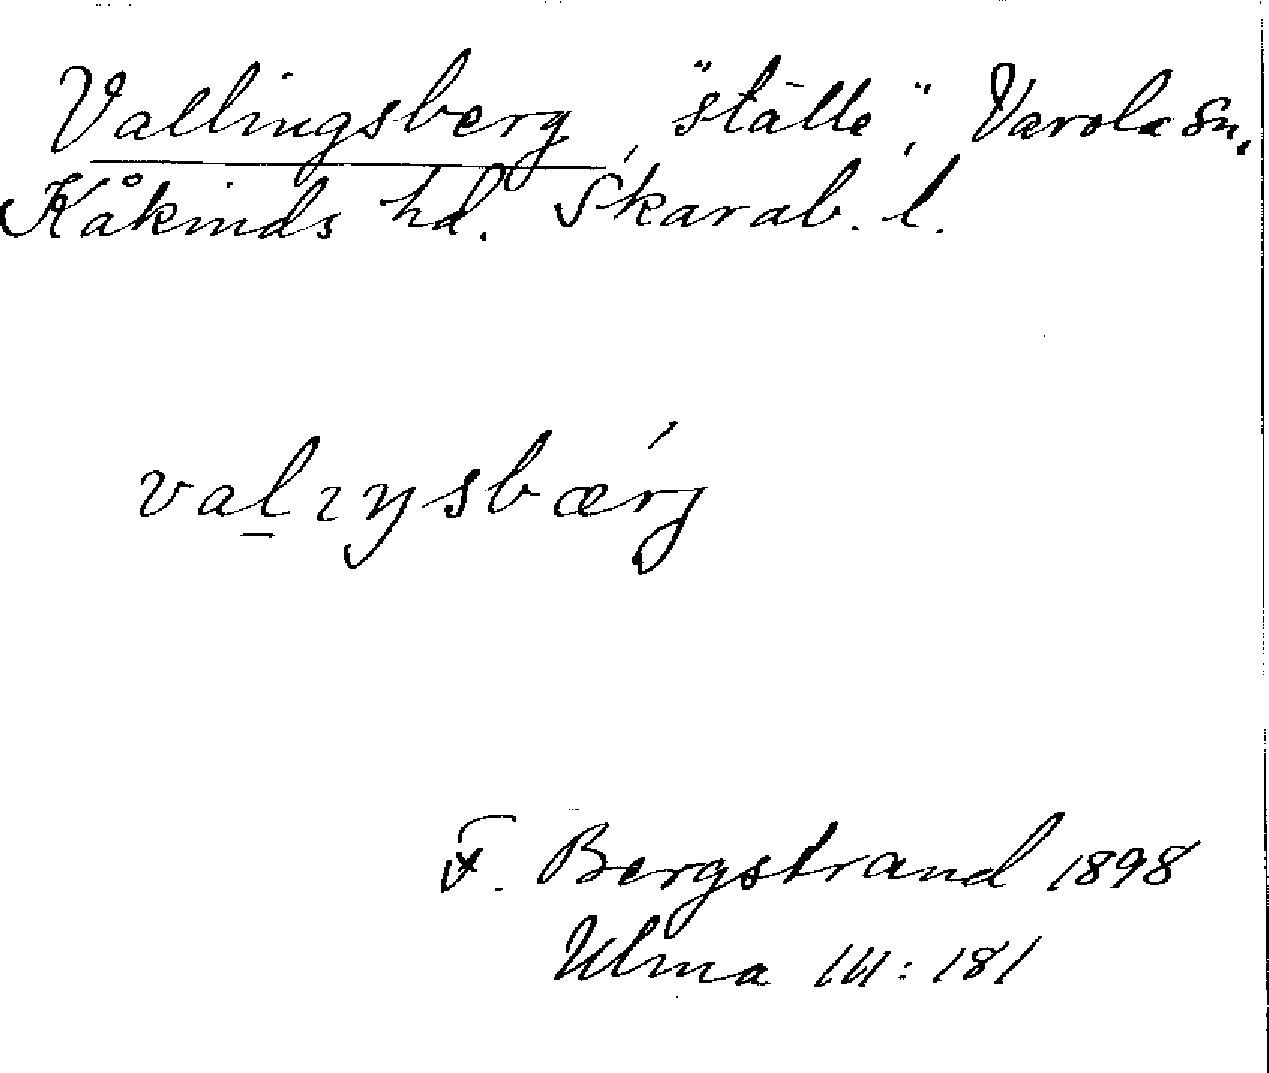 Vallingsberg, "ställe", Varola sn,
Kåkinds hd. Skarab. l.
val̲ıŋsbærg´
F. Bergstrand 1898
Ulma 111: 181